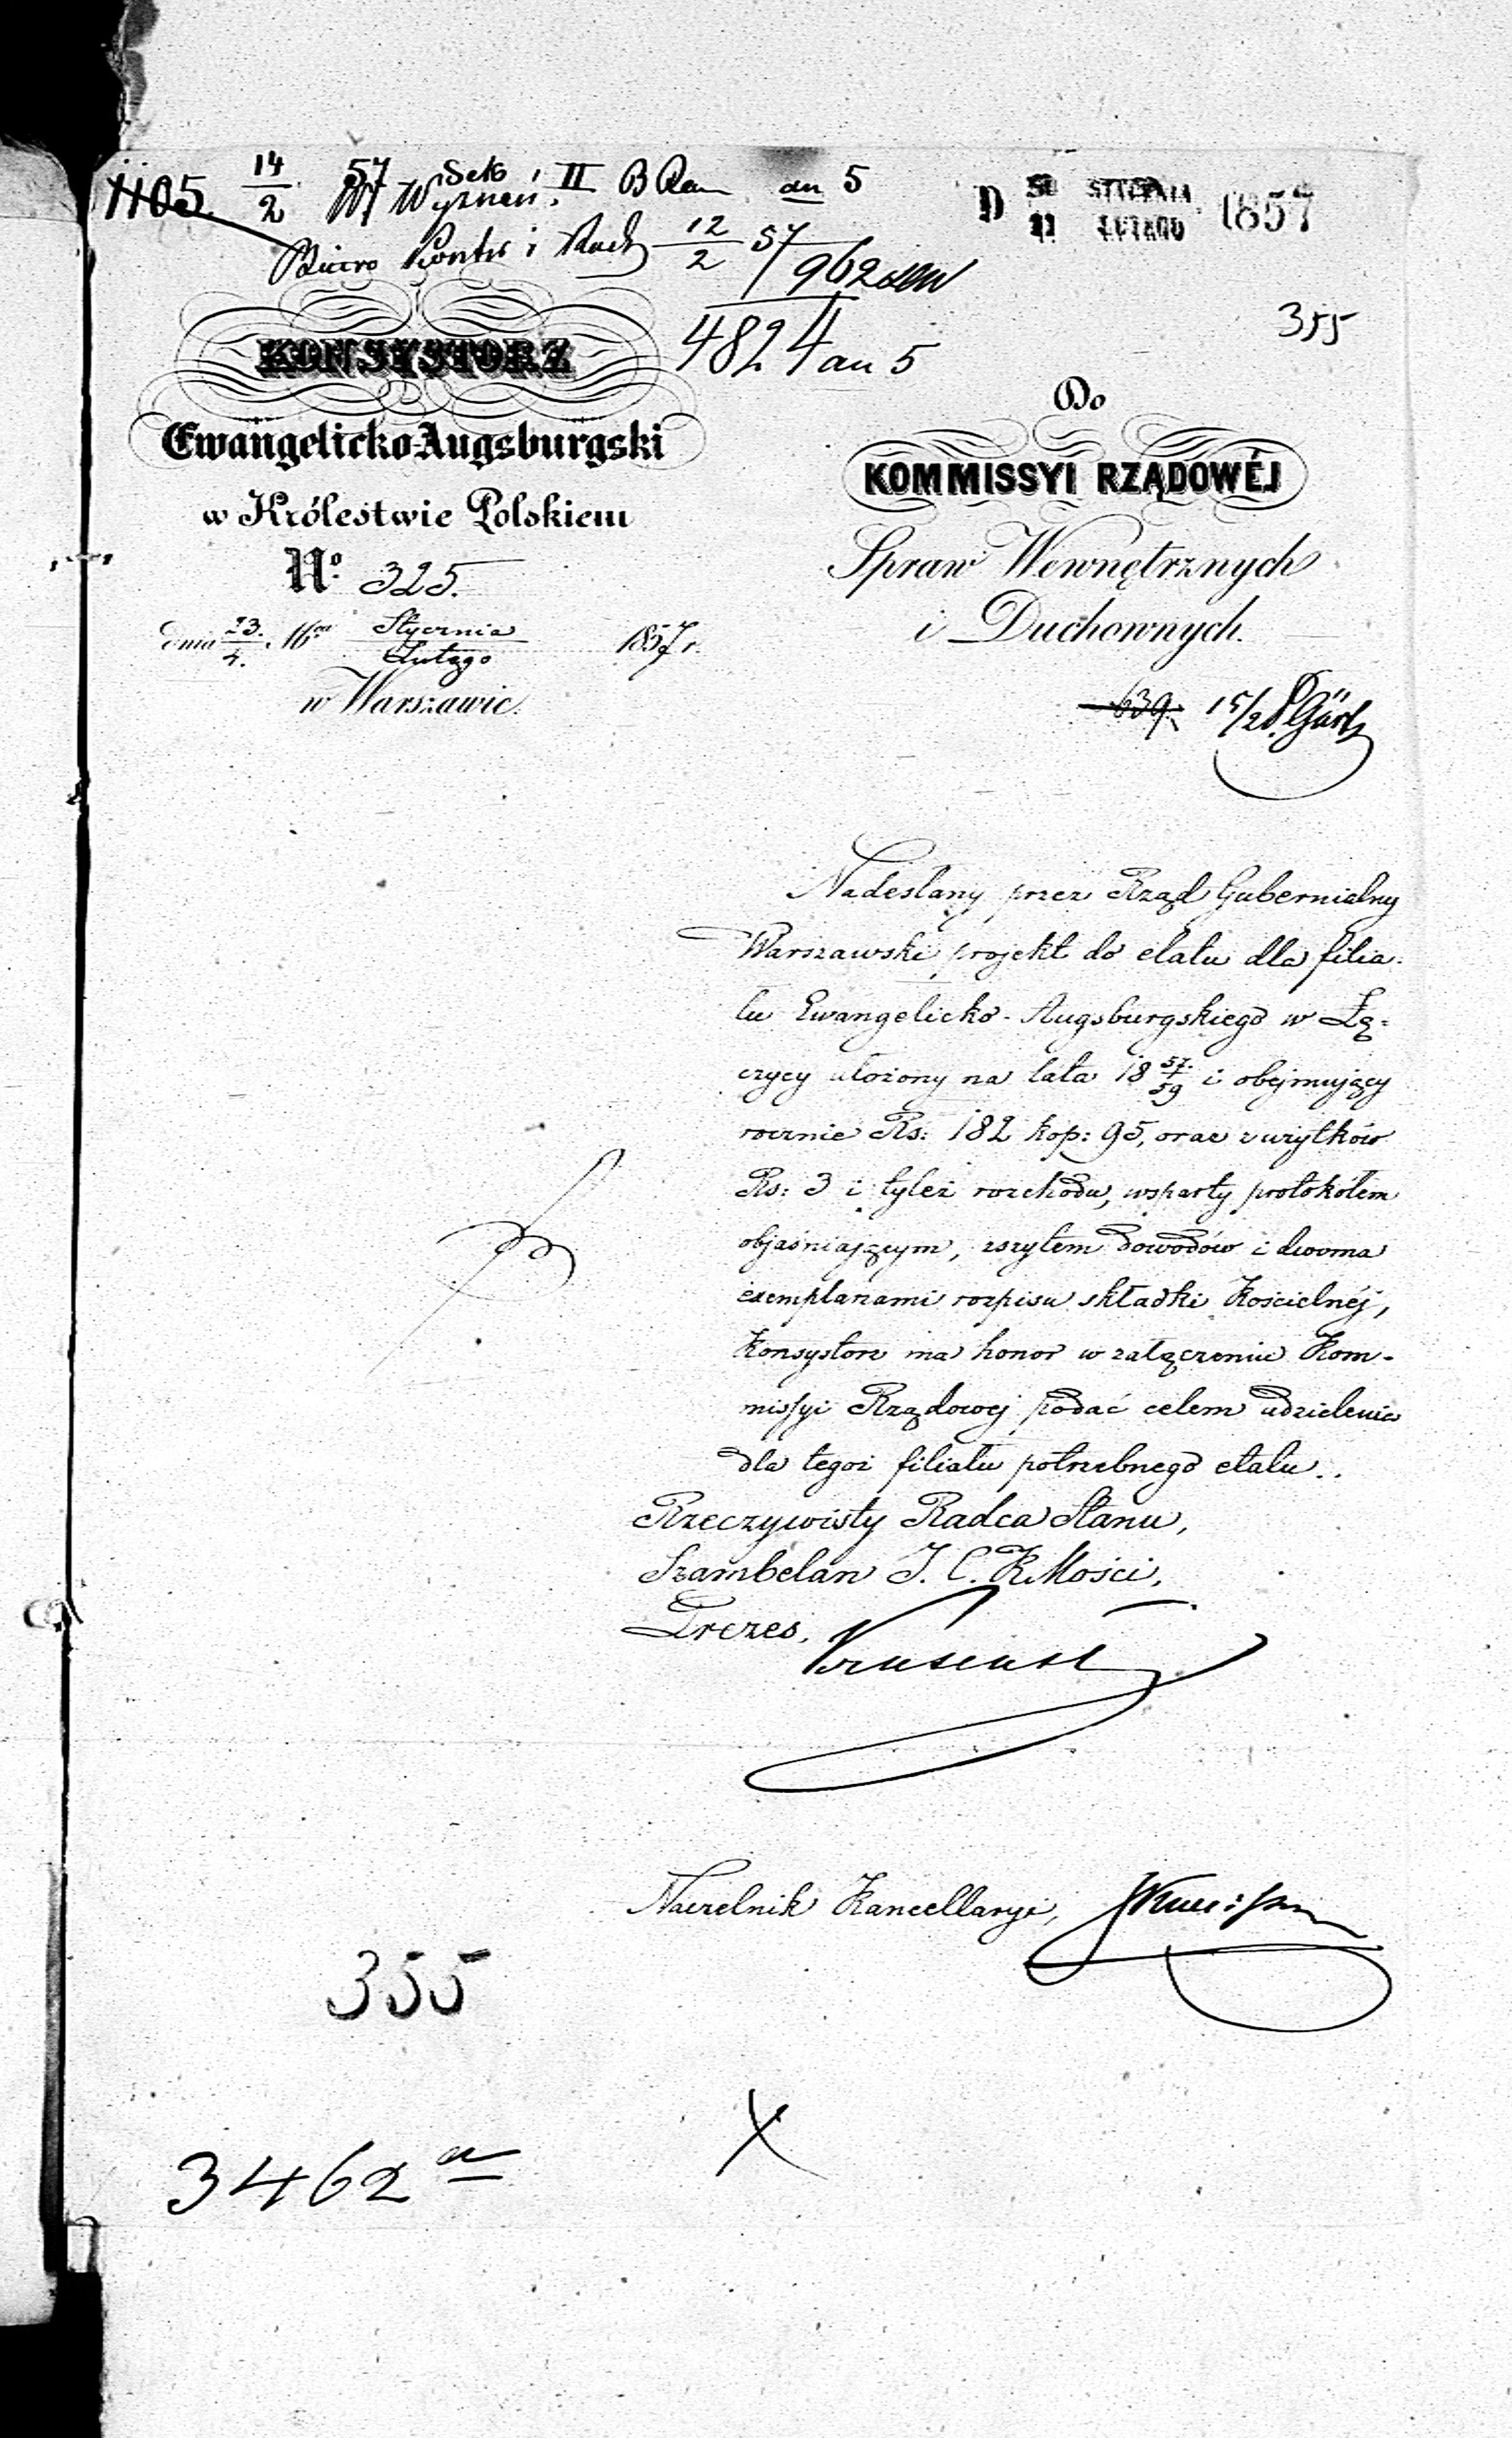 1105. 14/2 57 Sekr. II an 5
Wyznań.
Biuro Kontr i Rach 12/2 57
962
4824 an 5
D 30 STYCZNIA 1857
11 LUTEGO
355
KONSYSTORZ
Ewangelicko Augsburgski
w Królestwie Polskiem
No. 325.
dnia 23./4. Stycznia/Lutego 1857 r.
w Warszawie.
Do
KOMMISSYI RZĄDOWÉJ
Spraw Wewnętrznych
i Duchownych.
639. 15/2
Nadesłany przez Rząd Gubernialny
Warszawski projekt do etatu dla filia-
łu Ewangelicko-Augsburgskiego w Łę-
czycy ułożony na lata 18 57/59 i obejmujący
rocznie Rs: 182 kop: 95, oraz zużytków
Rs: 3 i tyleż rozchodu, wsparty protokółem
objaśniającym, zszytem dowodów i dwoma
exemplarzami rozpisu składki Kościelnéj,
Konsystorz ma honor w załączeniu Kom-
missyi Rządowej podać celem udzielenia
dla tegoż filiału potrzebnego etatu.
Rzeczywisty Radca Stanu,
Szambelan J. C. K Mości,
Prezes,
Naczelnik Kancellaryi,
355
3462